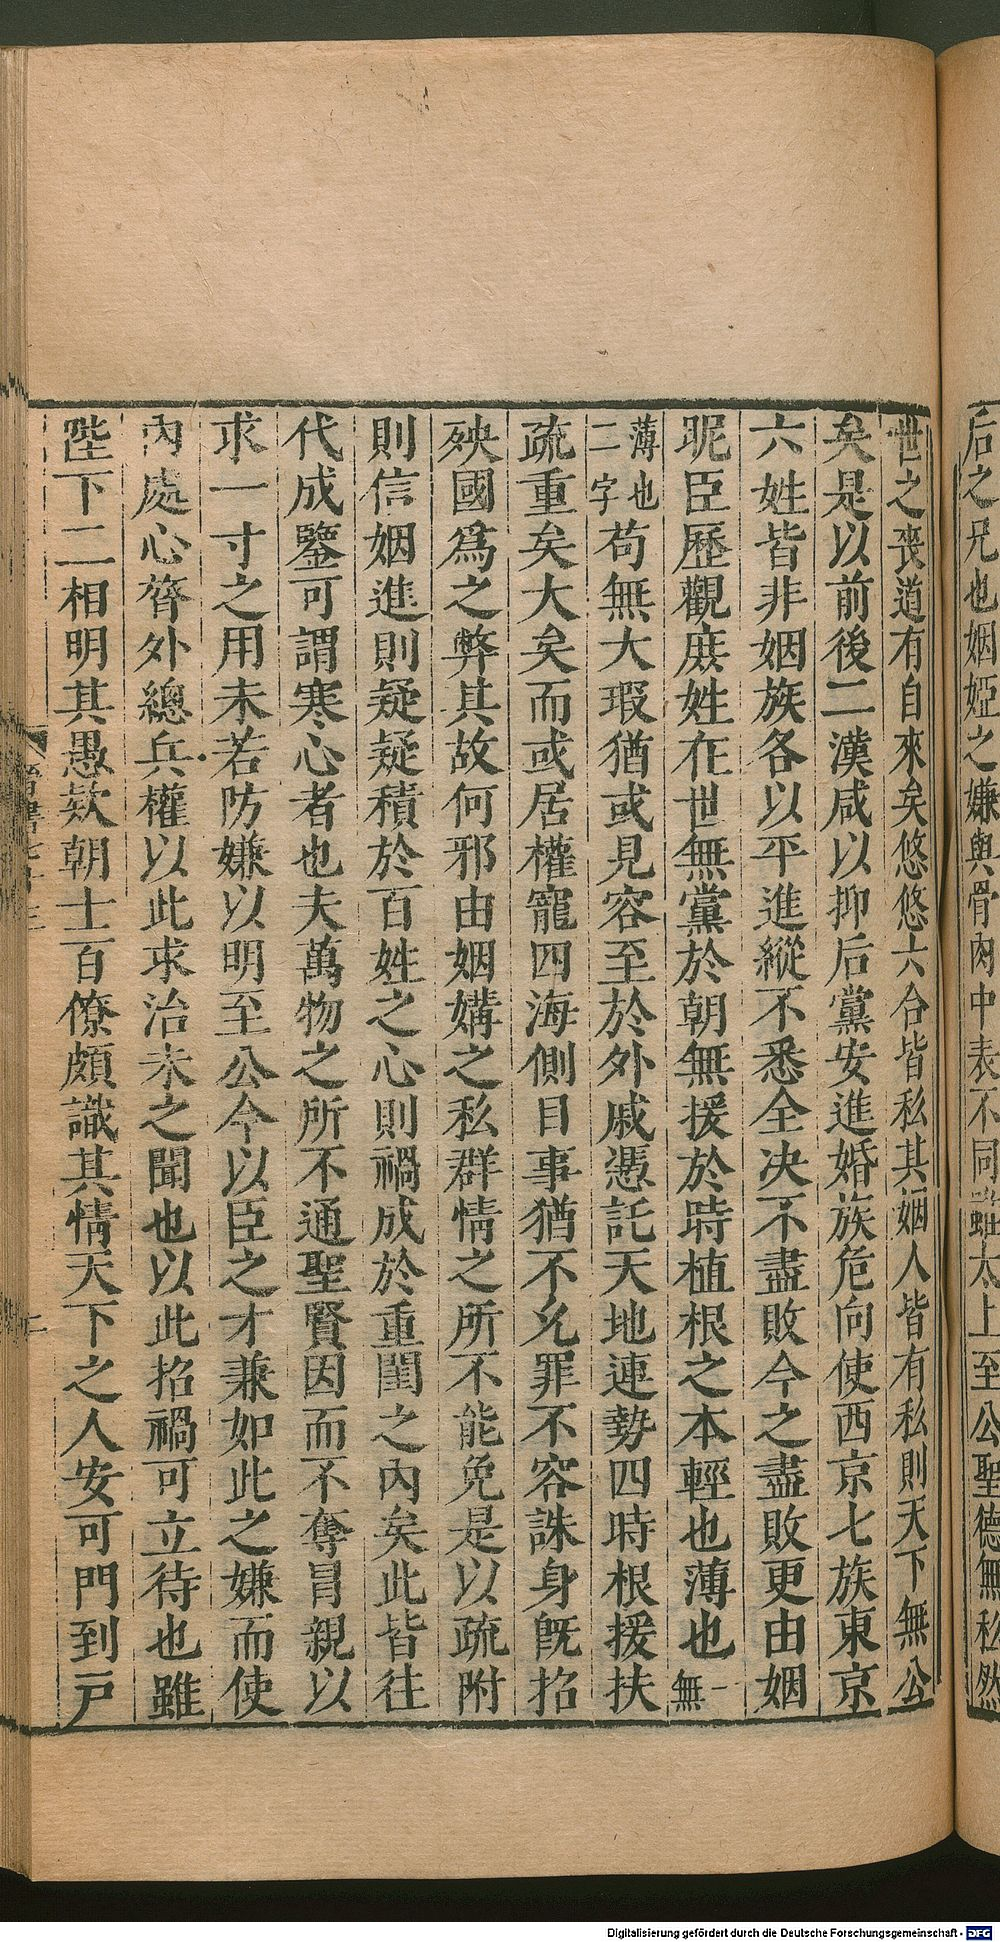 后之兄也姻婭之嫌與骨肉中表不同雖太上至公聖德無私然
世之喪道有自來矣悠悠六合皆私其姻人皆有私則天下無公
矣是以前後二漢咸以抑后黨安進婚族危向使西京七族東京
六姓皆非姻族各以平進縱不悉全决不盡敗今之盡敗更由姻
昵臣歷觀庶姓在世無黨於朝無援於時植根之本輕也薄也一無
薄也二字苟無大瑕猶或見容至於外戚憑託天地連勢四時根援扶
疏重矣大矣而或居權寵四海側目事猶不允罪不容誅身旣招
殃國爲之弊其故何邪由姻媾之私群情之所不能免是以疏附
則信姻進則疑疑積於百姓之心則禍成於重闉之內矣此皆往
代成鑒可謂寒心者也夫萬物之所不通聖賢因而不奪冒親以
求一寸之用未若防嫌以明至公今以臣之才兼如此之嫌而使
內處心膂外總兵權以此求治未之聞也以此招禍可立待也雖
陛下二相明其愚欵朝士百僚頗識其情天下之人安可門到戶
晉書七十三
二
Digitalisierung gefördert durch die Deutsche Forschungsgemeinschaft - DFG